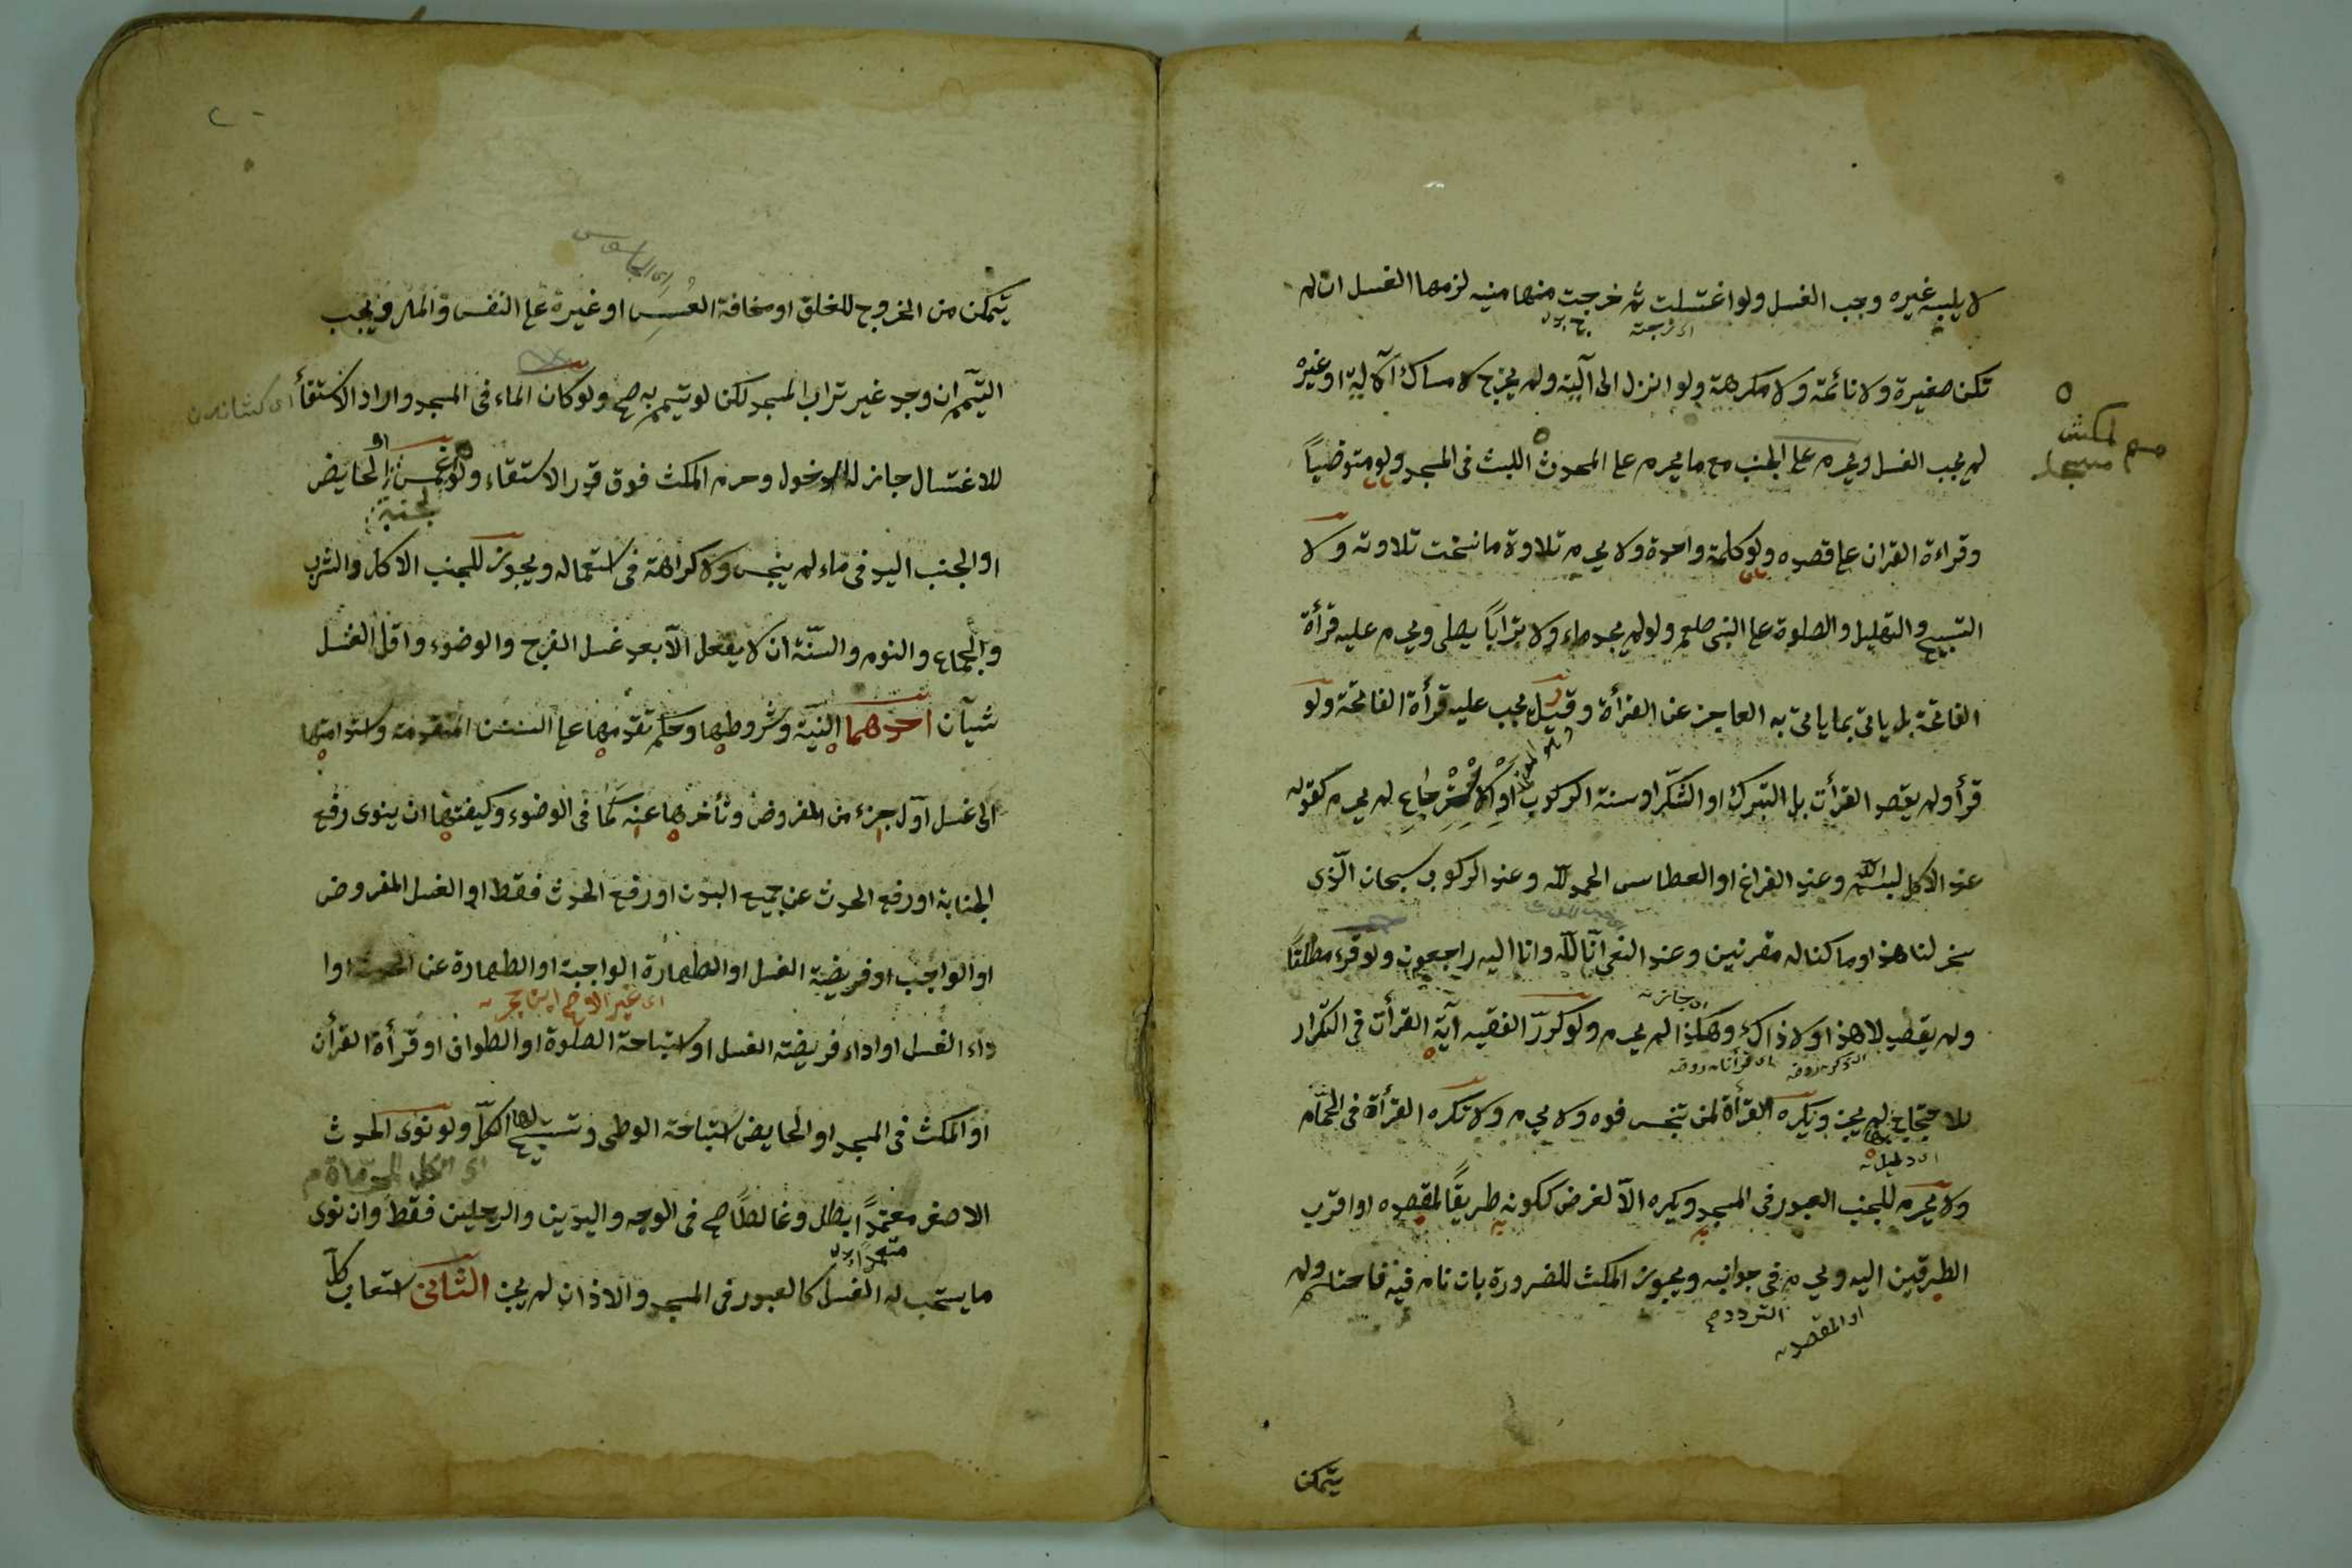 لا يلبسه غيره وجب الغسل ولو اغتسلت ثم خرجت منها منيه لزمها الغسل ان لم
تكن صغيرة ولا نائمة ولا مكرهة ولو انزل الى آليته ولم يخرج لامساك الآلية او غيره
لم يجب الغسل ويحرم على الجنب مع ما يحرم على المحدث اللبث فى المسجد ولو متوضياً
وقراءة القران على قصده ولو كلمة واحدة ولا يحرم تلاوة ما نسخت تلاوته ولا
التسبيح والتهليل والصلوة على النبى صلعم ولو لم يجد ماء ولا تراباً يصلى ويحرم عليه قرأة
الفاتحة بل ياتى بما ياتى به العاجز عن القرأة وقيل يجب عليه قرأة الفاتحة ولو
قرأ ولم يقصد القرأن بل التبرك او الشكر او سنة الركوب او الاسترجاع لم يحرم كقوله
عند الاكل بسم الله وعند الفراغ او العطاس الحمد لله وعند الركوب سبحان الذى
سخر لنا هذا وما كنا له مقرنين وعند النعى انا لله وانا اليه راجعون ولو قرء مطلقاً
ولم يقصد لا هذا ولا ذاك وهكذا لم يحرم ولو كرر الفقيه آية القرأن فى التكرار
للاحتجاج لم يجز ويكره القرأة لمن تنجس فوه ولا يحرم ولا تكره القرأة فى الحمّام
ولا يحرم للجنب العبور فى المسجد ويكره الا لغرض ككونه طريقاً لمقصده او اقرب
الطريقين اليه ويحرم فى جوانبه ويجوز المكث للضرورة بان نام فيه فاحتلم ولم
الترددح
او المقصد
يتمكن
يتمكن من الخروج للغلق او مخافة العسس او غيره على النفس والمال ويجب
التيمم ان وجد غير تراب المسجد لكن لو تيمم به صح ولو كان الماء فى المسجد واراد الاستقأ
للاغتسال جاز له الدخول وحرم المكث فوق قدر الاستقاء ولو غمس الحايض
او الجنب اليد فى ماء لم ينجس ولا كراهة فى استعماله ويجوز للجنب الاكل والشرب
والجماع والنوم والسنّة ان لا يفعل الا بعد غسل الفرج والوضوء واقل الغسل
شيآن احدهما النية وشروطها وحكم تقدمها على السنن المتقدمة واستدامتها
الى غسل اول جزء من المفروض وتأخرها عنه كما فى الوضوء وكيفيتها ان ينوى رفع
الجنابة او رفع الحدث عن جميع البدن او رفع الحدث فقط او الغسل المفروض
او الواجب او فريضة الغسل او الطهارة الواجبة او الطهارة عن الحدث او ا
داء الغسل او اداء فريضته الغسل او استباحة الصلوة او الطواف او قرأة القرأن
او المكث فى المسجد او الحايض استباحة الوطى وتستبيح لها الكل ولو نوى الحدث
اى الكل المحرماة
الاصغر معتمداً ابطل وغالطاً صح فى الوجه واليدين والرجلين فقط وان نوى
متعمداً
ما يستحب له الغسل كالعبور فى المسجد والاذان لم يجز الثانى استعاب كل